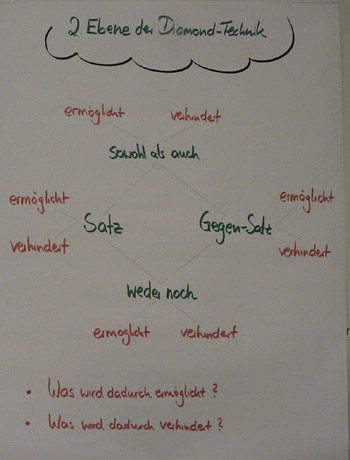 2. Ebene der Diamond-Technik
ermöglicht verhindert
Sowohl als auch
ermöglicht ermöglicht
Satz Gegen-Satz
verhindert verhindert
Weder noch
ermöglicht verhindert
• Was wird dadurch ermöglicht?
• Was wird dadurch verhindert?